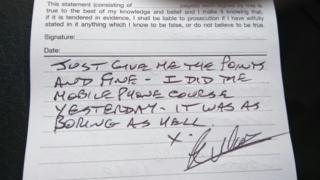 This statement (consisting of
true to the best of my knowledge and belief and I make it knowing that,
if it is tendered in evidence, I shall be liable to prosecution if I have wilfully
stated in it anything which I know to be false, or do not believe to be true.
Signature:
Date:
JUST GIVE ME THE POINTS
AND FINE - I DID THE
MOBILE PHONE COURSE
YESTERDAY - IT WAS AS
BORING AS HELL.
X.